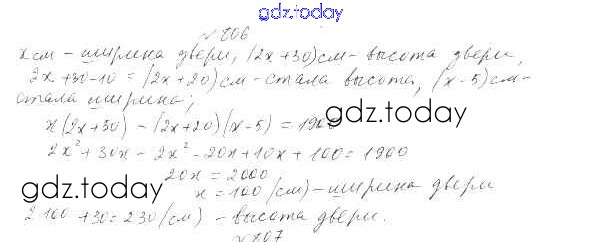 gdz.today
№ 806
x см - ширина двери, (2x+30) см - высота двери,
2x+30-10 = (2x+20) см - стала высота, (x-5) см -
стала ширина;
x(2x+30) - (2x+20)(x-5) = 1900
gdz.today
2x² + 30x - 2x² - 20x + 10x + 100 = 1900
20x = 2000
gdz.today
x = 100 (см) - ширина двери
2·100 + 30 = 230 (см) - высота двери.
gdz.today
№ 807